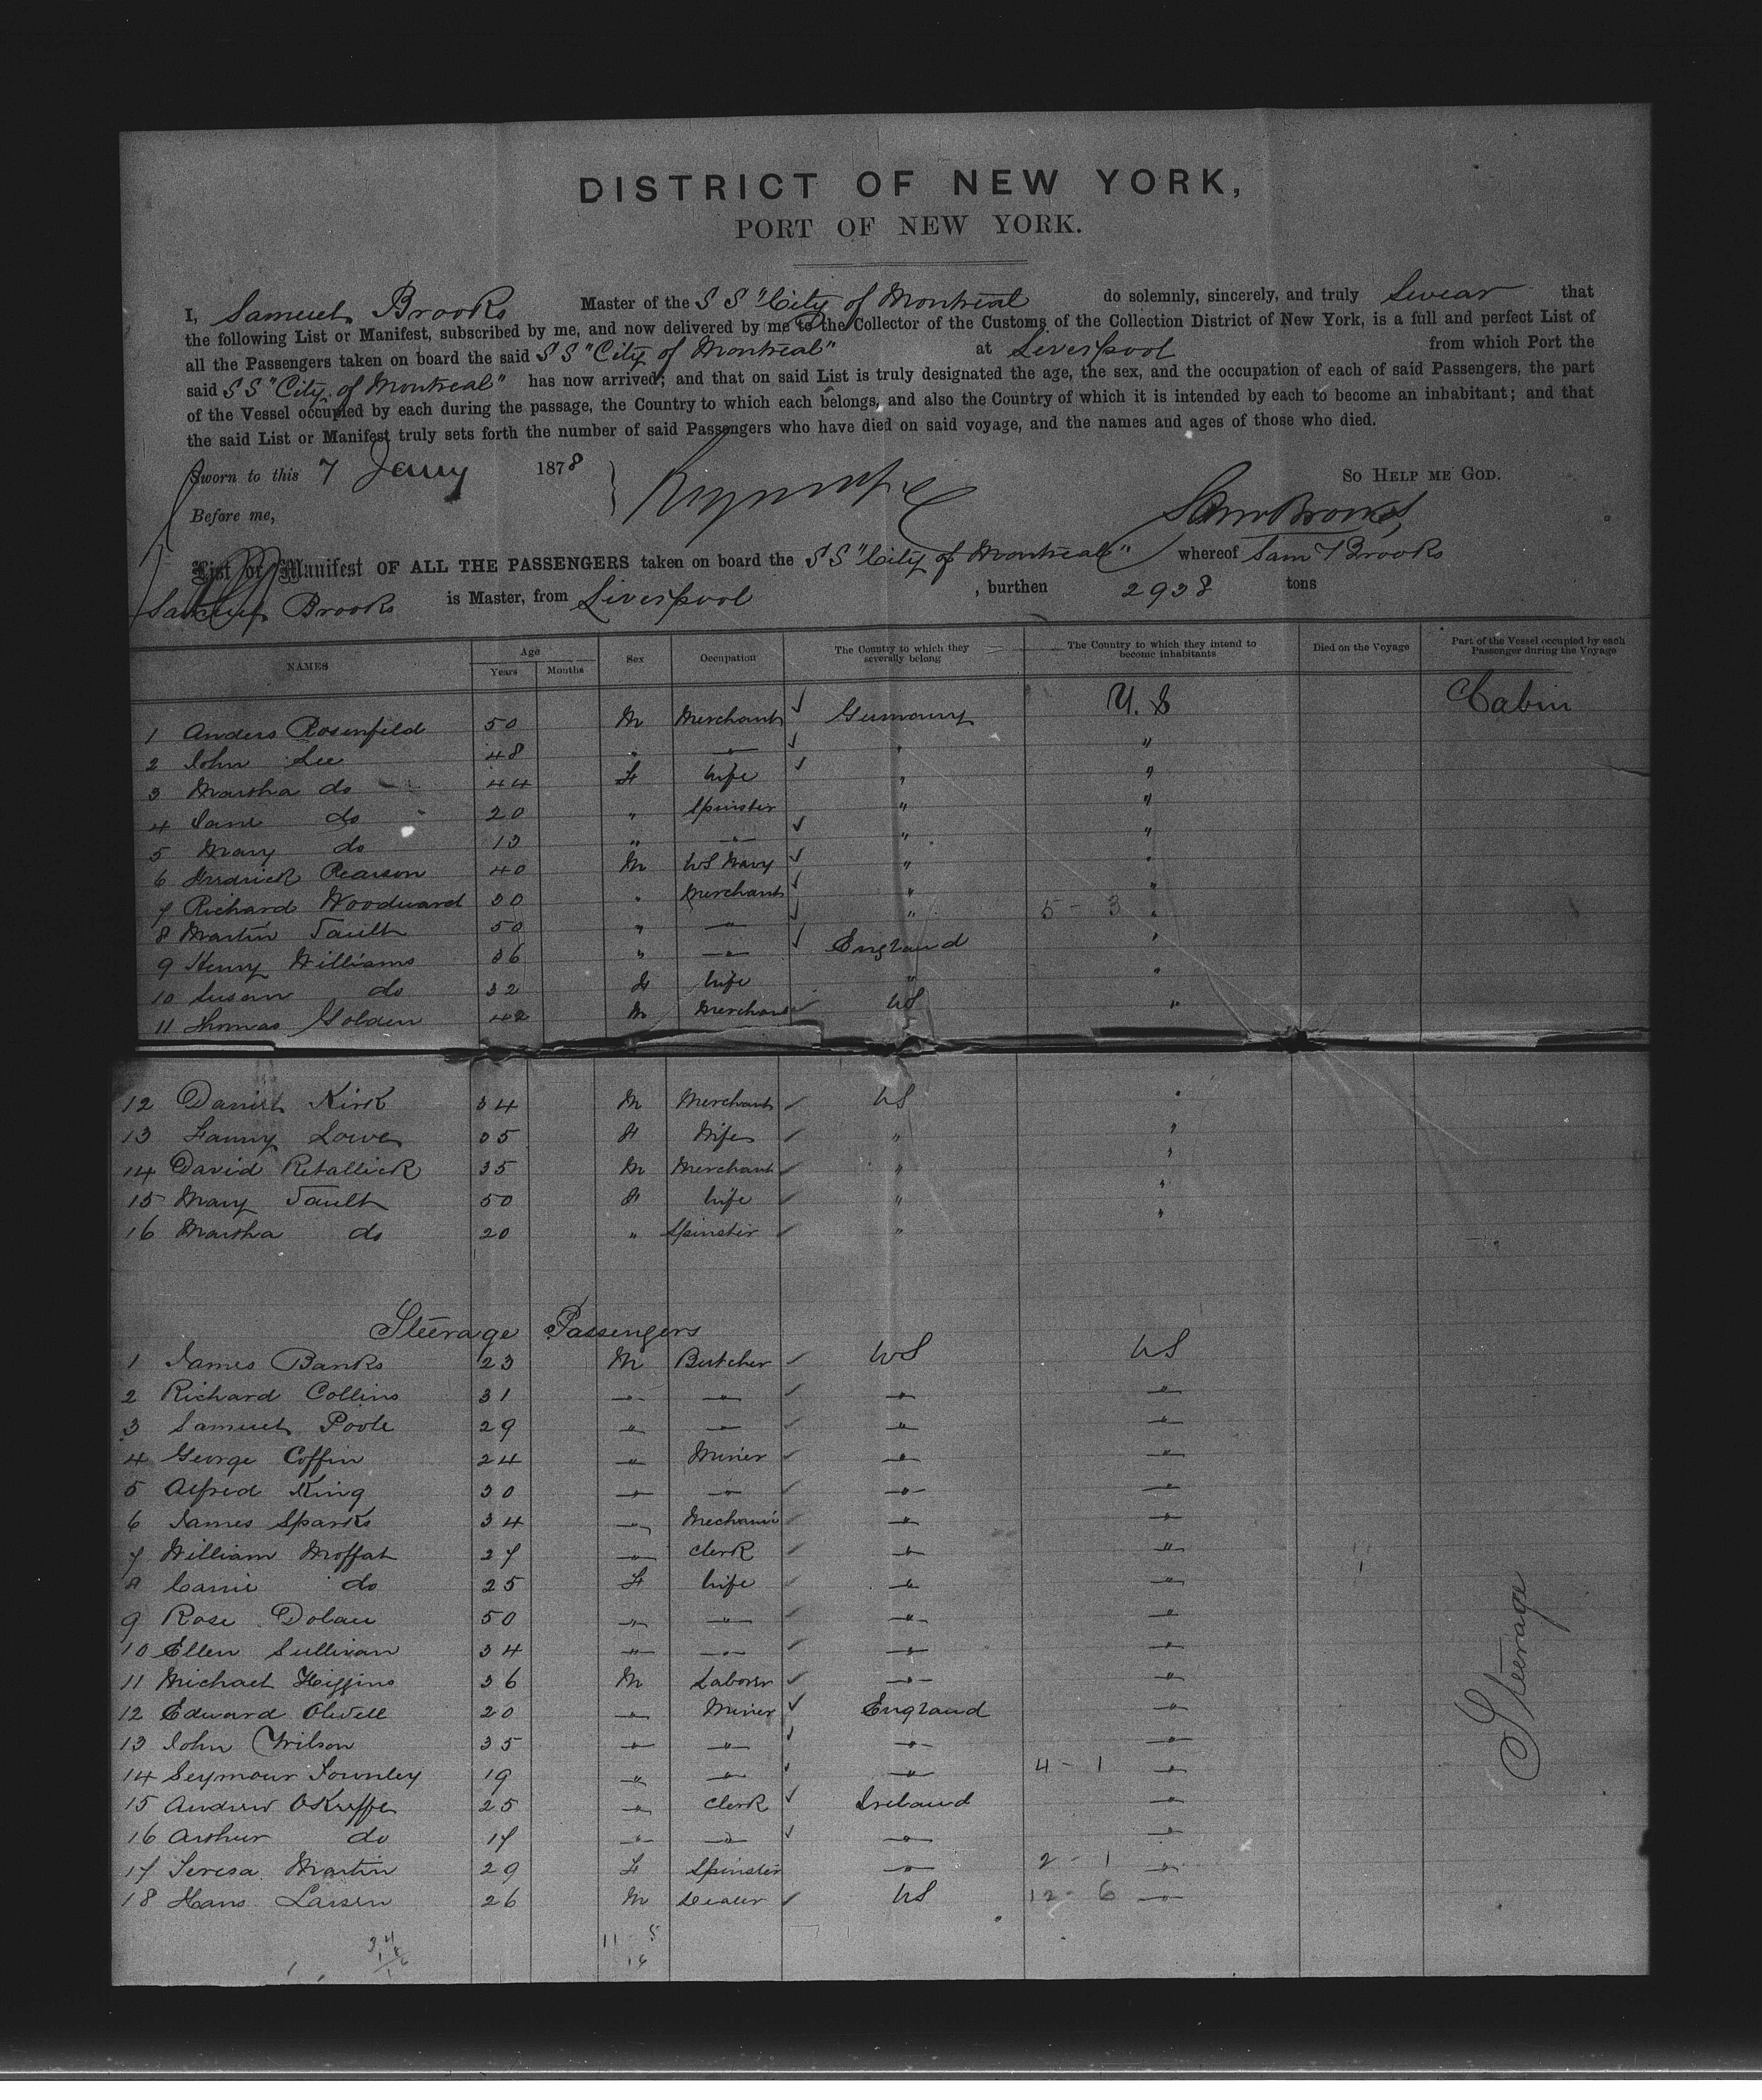 DISTRICT OF NEW YORK,
PORT OF NEW YORK.
I, Samuel Brooks Master of the S S "City of Montreal do solemnly, sincerely, and truly Swear that
the following List or Manifest, subscribed by me, and now delivered by me to the Collector of the Customs of the Collection District of New York, is a full and perfect List of
all the Passengers taken on board the said S S "City of Montreal" at Liverpool from which Port the
said S S "City of Montreal" has now arrived; and that on said List is truly designated the age, the sex, and the occupation of each of said Passengers, the part
of the Vessel occupied by each during the passage, the Country to which each belongs, and also the Country of which it is intended by each to become an inhabitant; and that
the said List or Manifest truly sets forth the number of said Passengers who have died on said voyage, and the names and ages of those who died.
Sworn to this 7 Jany 1878 So HELP ME GOD.
Before me, Saml Brooks
List or Manifest OF ALL THE PASSENGERS taken on board the S S "City of Montreal" whereof Saml Brooks
Samuel Brooks is Master, from Liverpool , burthen 2938 tons
NAMES Age Years Months Sex Occupation The Country to which they severally belong The Country to which they intend to become inhabitants Died on the Voyage Part of the Vessel occupied by each Passenger during the Voyage
1 Anders Rosenfeld 50 M Merchant Germany U.S Cabin
2 John Lee 48 " " " "
3 Martha do 44 F Wife " "
4 Jane do 20 " Spinster " "
5 Mary do 13 " " " "
6 Fredrick Pearson 40 M US Navy " "
7 Richard Woodward 30 " Merchant " "
8 Martin Tault 50 " " " 5 - 3 "
9 Henry Williams 36 " " England "
10 Susan do 32 F Wife " "
11 Thomas Golden 42 M Merchant US "
12 Daniel Kirk 34 M Merchant US "
13 Fanny Lowe 35 F Wife " "
14 David Retallick 35 M Merchant " "
15 Mary Tault 50 F Wife " "
16 Martha do 20 " Spinster "
Steerage Passengers
1 James Banks 23 M Butcher US US
2 Richard Collins 31 " " " "
3 Samuel Poole 29 " " " "
4 George Coffin 24 " Miner " "
5 Alfred King 30 " " " "
6 James Sparks 34 " Mechanic " "
7 William Moffat 27 " Clerk " "
8 Carrie do 25 F Wife " "
9 Rose Dolan 50 " " " "
10 Ellen Sullivan 34 " " " "
11 Michael Higgins 36 M Laborer " "
12 Edward Olwell 20 " Miner England "
13 John Wilson 35 " " " "
14 Seymour Townley 19 " " " 4 - 1 "
15 Andrew OKeeffe 25 " Clerk Ireland "
16 Arthur do 17 " " " "
17 Teresa Martin 29 F Spinster " 2 - 1 "
18 Hans Larsen 26 M Dealer US 12 - 6 "
Steerage
11 - 5